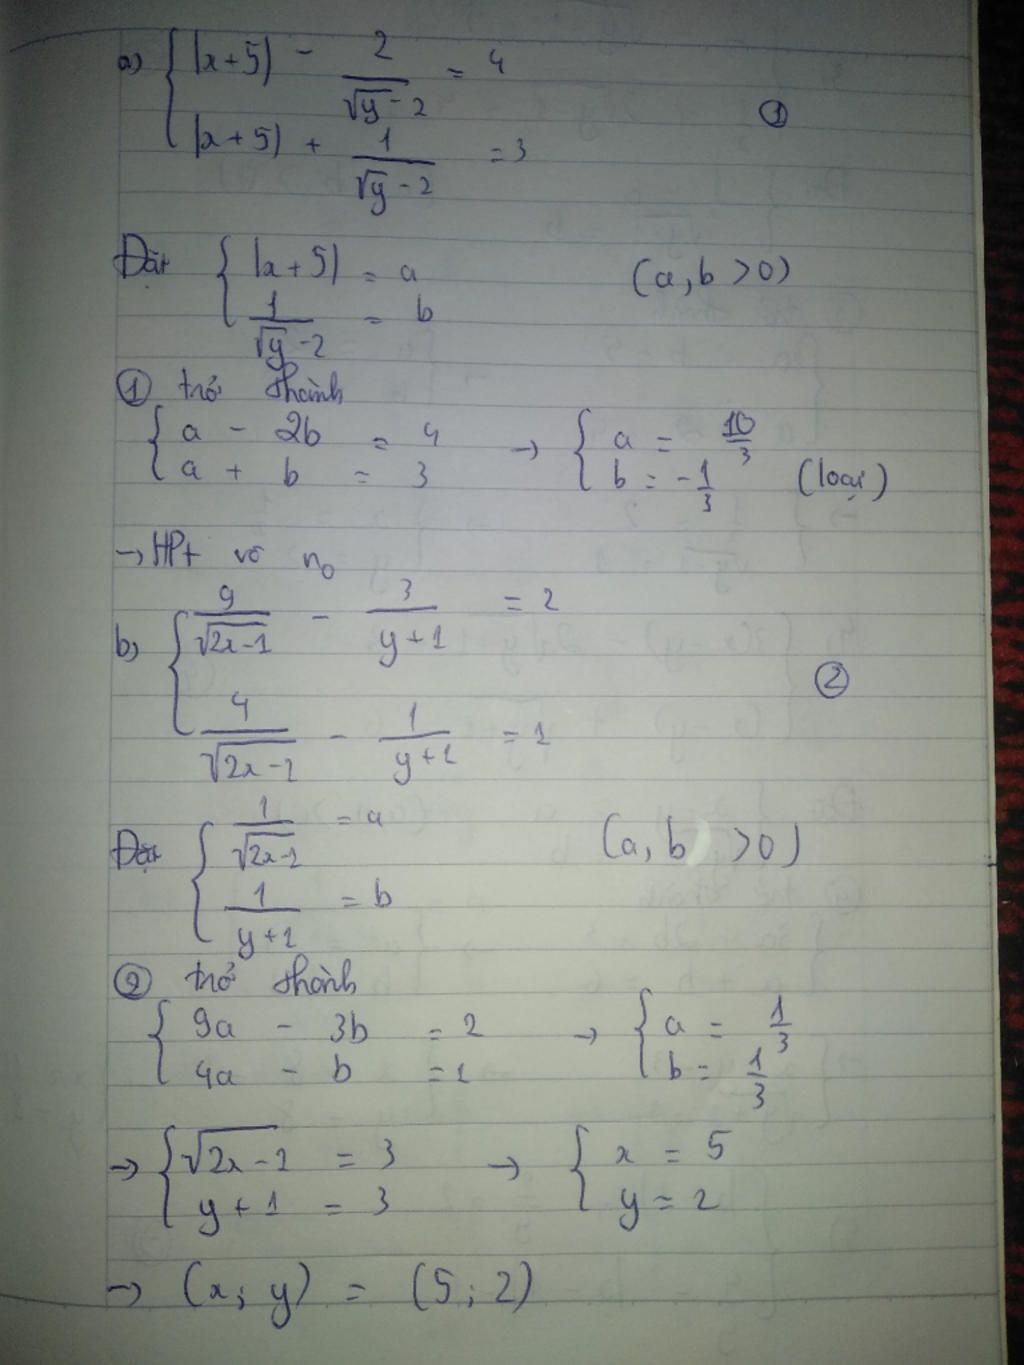 a) { |x+5| - 2/(√y - 2) = 4
|x+5| + 1/(√y - 2) = 3 ①
Đặt { |x+5| = a (a, b > 0)
1/(√y - 2) = b
① trở thành
{ a - 2b = 4 → { a = 10/3
a + b = 3 b = -1/3 (loại)
→ HPt vô n₀
b) { 9/√(2x-1) - 3/(y+1) = 2
4/√(2x-1) - 1/(y+1) = 1 ②
Đặt { 1/√(2x-1) = a (a, b > 0)
1/(y+1) = b
② trở thành
{ 9a - 3b = 2 → { a = 1/3
4a - b = 1 b = 1/3
→ { √(2x-1) = 3 → { x = 5
y + 1 = 3 y = 2
→ (x; y) = (5; 2)